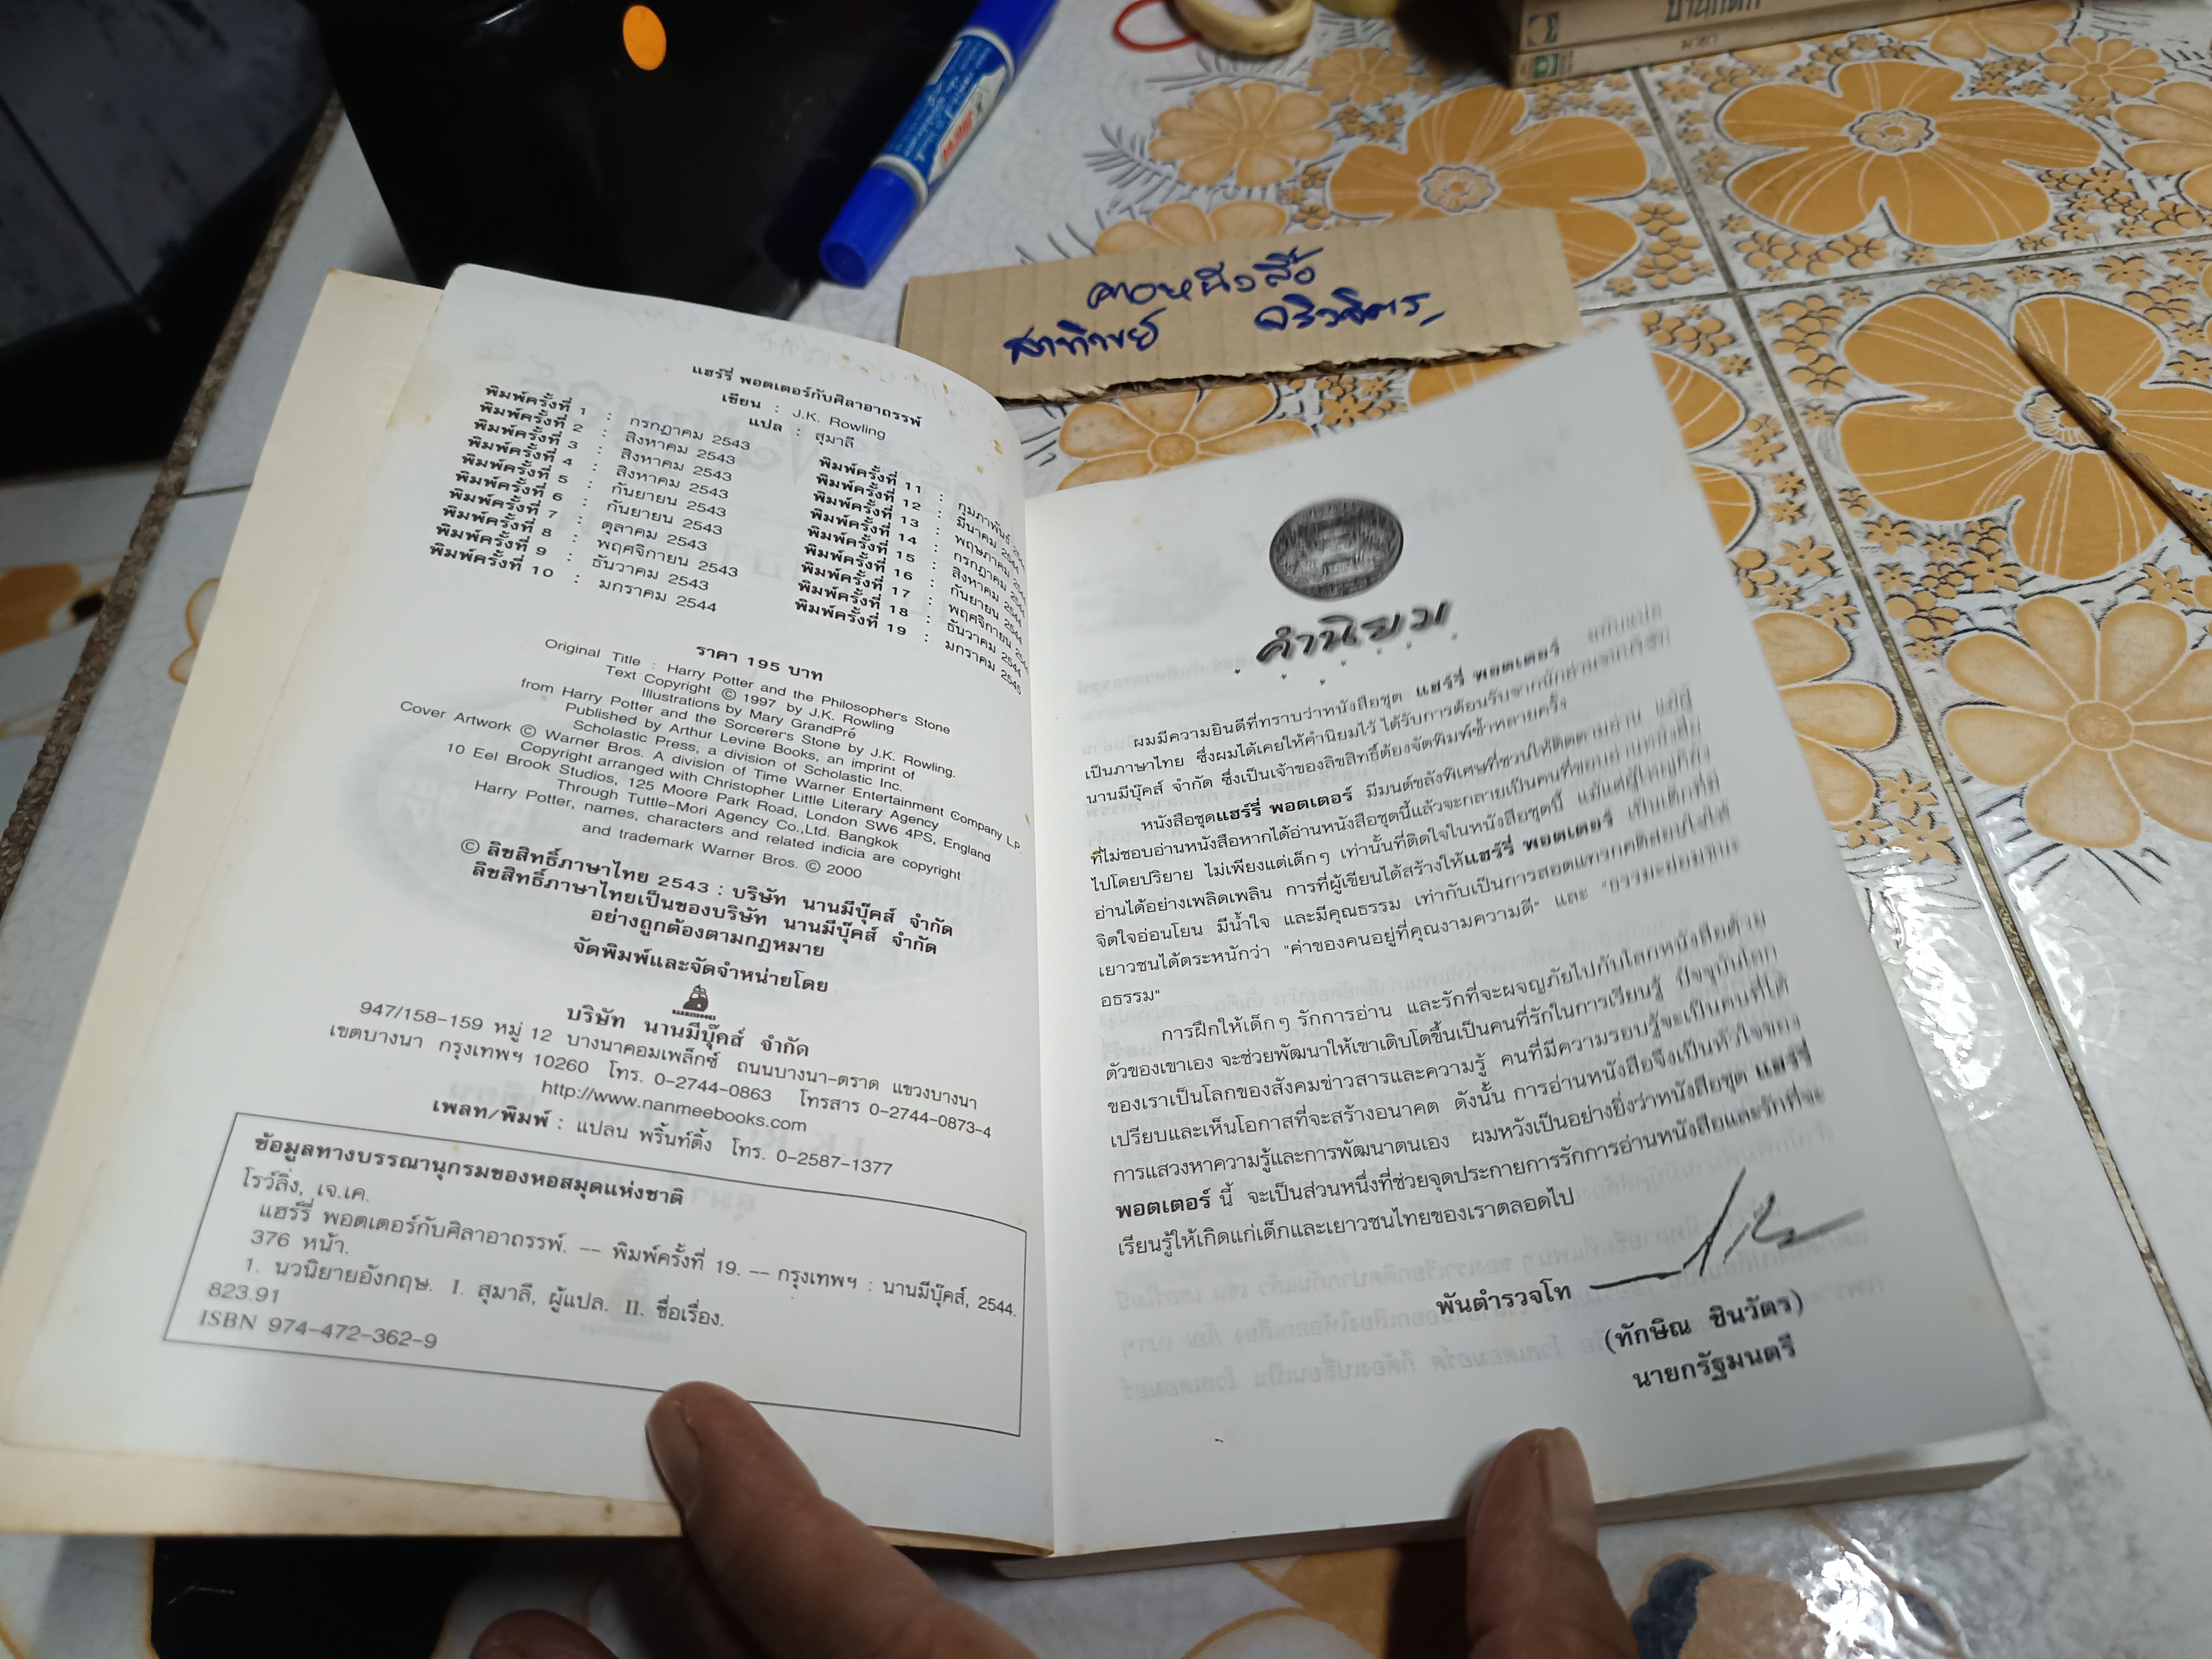 คำนิยม
แฮร์รี่ พอตเตอร์กับศิลาอาถรรพ์
เขียน : J.K. Rowling
แปล : สุมาลี
พิมพ์ครั้งที่ 1 : กรกฎาคม 2543
พิมพ์ครั้งที่ 2 : สิงหาคม 2543
พิมพ์ครั้งที่ 3 : สิงหาคม 2543
พิมพ์ครั้งที่ 4 : สิงหาคม 2543
พิมพ์ครั้งที่ 5 : กันยายน 2543
พิมพ์ครั้งที่ 6 : กันยายน 2543
พิมพ์ครั้งที่ 7 : ตุลาคม 2543
พิมพ์ครั้งที่ 8 : พฤศจิกายน 2543
พิมพ์ครั้งที่ 9 : ธันวาคม 2543
พิมพ์ครั้งที่ 10 : มกราคม 2544
พิมพ์ครั้งที่ 11 : กุมภาพันธ์
พิมพ์ครั้งที่ 12 : มีนาคม 2544
พิมพ์ครั้งที่ 13 : พฤษภาคม
พิมพ์ครั้งที่ 14 : กรกฎาคม
พิมพ์ครั้งที่ 15 : สิงหาคม 2544
พิมพ์ครั้งที่ 16 : กันยายน 2544
พิมพ์ครั้งที่ 17 : พฤศจิกายน
พิมพ์ครั้งที่ 18 : ธันวาคม 2544
พิมพ์ครั้งที่ 19 : มกราคม 2545
ราคา 195 บาท
Original Title : Harry Potter and the Philosopher's Stone
Text Copyright © 1997 by J.K. Rowling
Illustrations by Mary GrandPré
from Harry Potter and the Sorcerer's Stone by J.K. Rowling.
Published by Arthur Levine Books, an imprint of
Scholastic Press, a division of Scholastic Inc.
Cover Artwork © Warner Bros. A division of Time Warner Entertainment Company L.P.
Copyright arranged with Christopher Little Literary Agency
10 Eel Brook Studios, 125 Moore Park Road, London SW6 4PS, England
Through Tuttle-Mori Agency Co.,Ltd. Bangkok
Harry Potter, names, characters and related indicia are copyright
and trademark Warner Bros. © 2000
© ลิขสิทธิ์ภาษาไทย 2543 : บริษัท นานมีบุ๊คส์ จำกัด
ลิขสิทธิ์ภาษาไทยเป็นของบริษัท นานมีบุ๊คส์ จำกัด
อย่างถูกต้องตามกฎหมาย
จัดพิมพ์และจัดจำหน่ายโดย
บริษัท นานมีบุ๊คส์ จำกัด
947/158-159 หมู่ 12 บางนาคอมเพล็กซ์ ถนนบางนา-ตราด แขวงบางนา
เขตบางนา กรุงเทพฯ 10260 โทร. 0-2744-0863 โทรสาร 0-2744-0873-4
http://www.nanmeebooks.com
เพลท/พิมพ์ : แปลน พริ้นท์ติ้ง โทร. 0-2587-1377
ข้อมูลทางบรรณานุกรมของหอสมุดแห่งชาติ
โรว์ลิ่ง, เจ.เค.
แฮร์รี่ พอตเตอร์กับศิลาอาถรรพ์. -- พิมพ์ครั้งที่ 19. -- กรุงเทพฯ : นานมีบุ๊คส์, 2544.
376 หน้า.
1. นวนิยายอังกฤษ. I. สุมาลี, ผู้แปล. II. ชื่อเรื่อง.
823.91
ISBN 974-472-362-9
ผมมีความยินดีที่ทราบว่าหนังสือชุด แฮร์รี่ พอตเตอร์ ฉบับแปล
เป็นภาษาไทย ซึ่งผมได้เคยให้คำนิยมไว้ ได้รับการต้อนรับจากนักอ่านจนบริษัท
นานมีบุ๊คส์ จำกัด ซึ่งเป็นเจ้าของลิขสิทธิ์ต้องจัดพิมพ์ซ้ำหลายครั้ง
หนังสือชุดแฮร์รี่ พอตเตอร์ มีมนต์ขลังพิเศษที่ชวนให้ติดตามอ่าน แม้ผู้
ที่ไม่ชอบอ่านหนังสือหากได้อ่านหนังสือชุดนี้แล้วจะกลายเป็นคนที่ชอบอ่านหนังสือ
ไปโดยปริยาย ไม่เพียงแต่เด็กๆ เท่านั้นที่ติดใจในหนังสือชุดนี้ แม้แต่ผู้ใหญ่ก็ยัง
อ่านได้อย่างเพลิดเพลิน การที่ผู้เขียนได้สร้างให้แฮร์รี่ พอตเตอร์ เป็นเด็กที่มี
จิตใจอ่อนโยน มีน้ำใจ และมีคุณธรรม เท่ากับเป็นการสอดแทรกคติสอนใจให้
เยาวชนได้ตระหนักว่า "ค่าของคนอยู่ที่คุณงามความดี" และ "ธรรมะย่อมชนะ
อธรรม"
การฝึกให้เด็กๆ รักการอ่าน และรักที่จะผจญภัยไปกับโลกหนังสือด้วย
ตัวของเขาเอง จะช่วยพัฒนาให้เขาเติบโตขึ้นเป็นคนที่รักในการเรียนรู้ ปัจจุบันโลก
ของเราเป็นโลกของสังคมข่าวสารและความรู้ คนที่มีความรอบรู้จะเป็นคนที่ได้
เปรียบและเห็นโอกาสที่จะสร้างอนาคต ดังนั้น การอ่านหนังสือจึงเป็นหัวใจของ
การแสวงหาความรู้และการพัฒนาตนเอง ผมหวังเป็นอย่างยิ่งว่าหนังสือชุด แฮร์รี่
พอตเตอร์ นี้ จะเป็นส่วนหนึ่งที่ช่วยจุดประกายการรักการอ่านหนังสือและรักที่จะ
เรียนรู้ให้เกิดแก่เด็กและเยาวชนไทยของเราตลอดไป
พันตำรวจโท
(ทักษิณ ชินวัตร)
นายกรัฐมนตรี